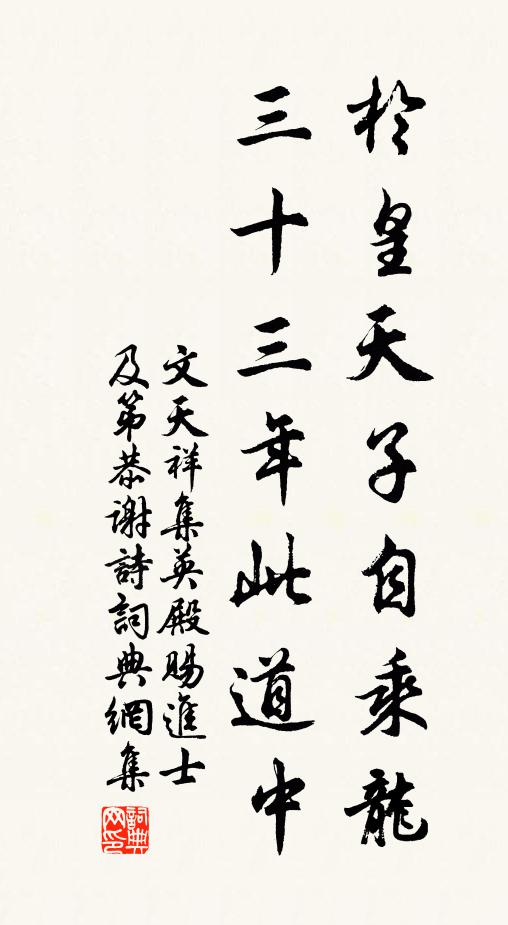 於皇天子自乘龍
三十三年此道中
文天祥集英殿賜進士
及第恭謝詩詞典網集
詞典
网印